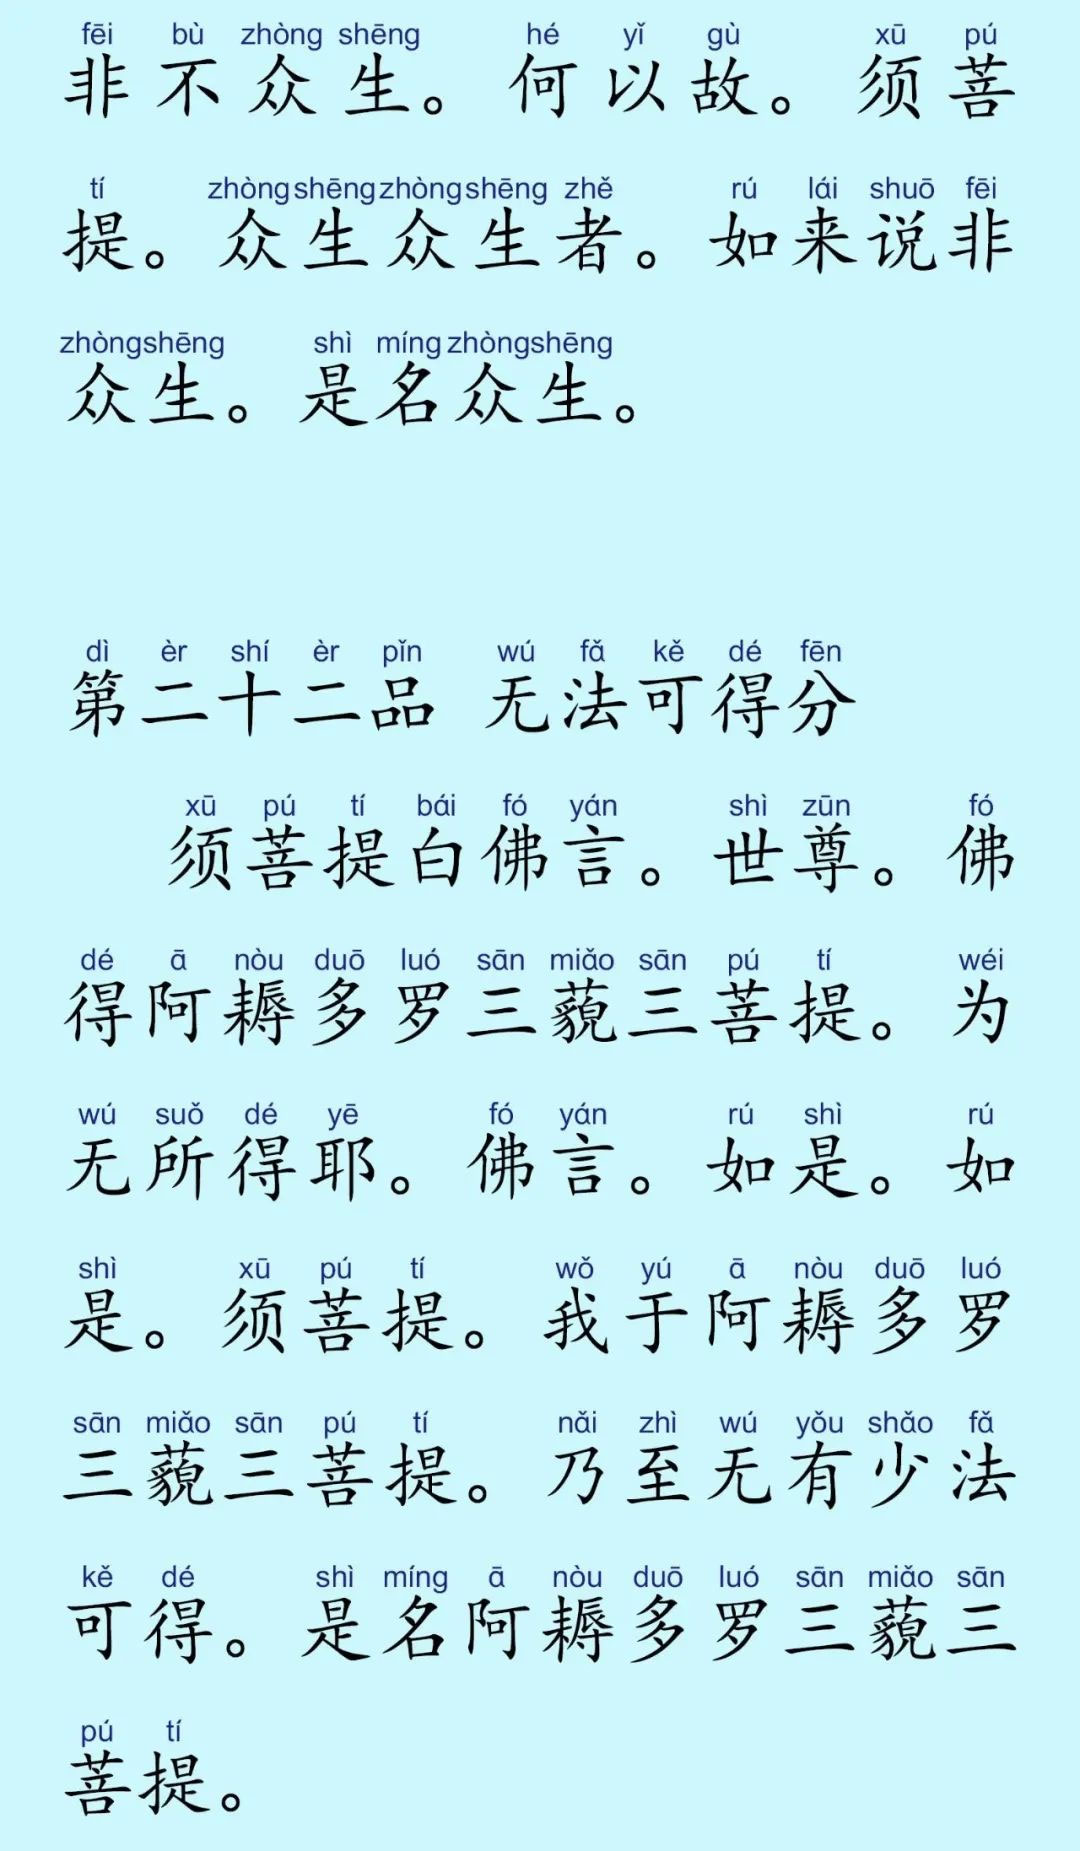 fēi bù zhòng shēng hé yǐ gù xū pú
非不众生。何以故。须菩
tí zhòng shēng zhòng shēng zhě rú lái shuō fēi
提。众生众生者。如来说非
zhòng shēng shì míng zhòng shēng
众生。是名众生。
dì èr shí èr pǐn wú fǎ kě dé fēn
第二十二品 无法可得分
xū pú tí bái fó yán shì zūn fó
须菩提白佛言。世尊。佛
dé ā nòu duō luó sān miǎo sān pú tí wéi
得阿耨多罗三藐三菩提。为
wú suǒ dé yē fó yán rú shì rú
无所得耶。佛言。如是。如
shì xū pú tí wǒ yú ā nòu duō luó
是。须菩提。我于阿耨多罗
sān miǎo sān pú tí nǎi zhì wú yǒu shǎo fǎ
三藐三菩提。乃至无有少法
kě dé shì míng ā nòu duō luó sān miǎo sān
可得。是名阿耨多罗三藐三
pú tí
菩提。